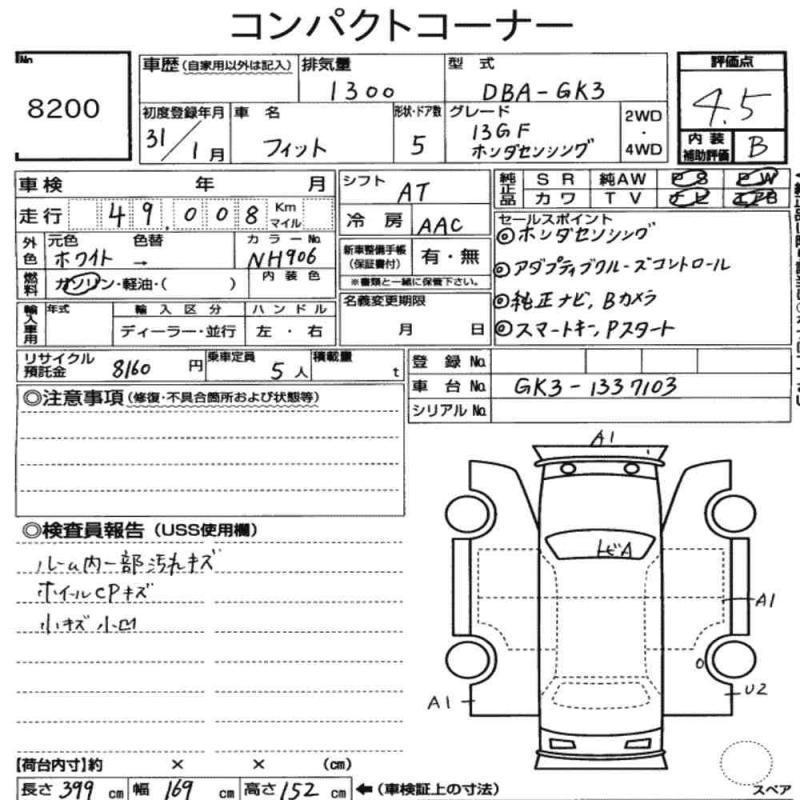 コンパクトコーナー
No
8200
車歴(自家用以外は記入)
排気量
1300
型式
DBA-GK3
評価点
4.5
初度登録年月
31/1月
車名
フィット
形状・ドア数
5
グレード
13GF
ホンダセンシング
2WD
・
4WD
内装
補助評価
B
車検 年 月
シフト
AT
純正品
SR 純AW PS PW
カワ TV ナビ エアB
走行 49,008 Km マイル
冷房 AAC
セールスポイント
◎ホンダセンシング
◎アダプティブクルーズコントロール
◎純正ナビ,Bカメラ
◎スマートキー,Pスタート
外色
元色 色替
ホワイト →
カラーNo.
NH906
新車整備手帳
(保証書付)
有・無
※書類と一緒に保管下さい。
燃料
ガソリン・軽油・( )
内装色
名義変更期限
月 日
輸入車用
年式
輸入区分
ディーラー・並行
ハンドル
左・右
リサイクル
預託金
8160円
乗車定員
5人
積載量
t
登録No.
車台No.
GK3-1337103
シリアルNo.
◎注意事項(修復・不具合箇所および状態等)
◎検査員報告(USS使用欄)
ルーム内一部汚れキズ
ホイールCPキズ
小キズ小凹
A1
トビA
A1
A1
U2
スペア
【荷台内寸】約 × × (cm)
長さ 399 cm 幅 169 cm 高さ 152 cm ←(車検証上の寸法)